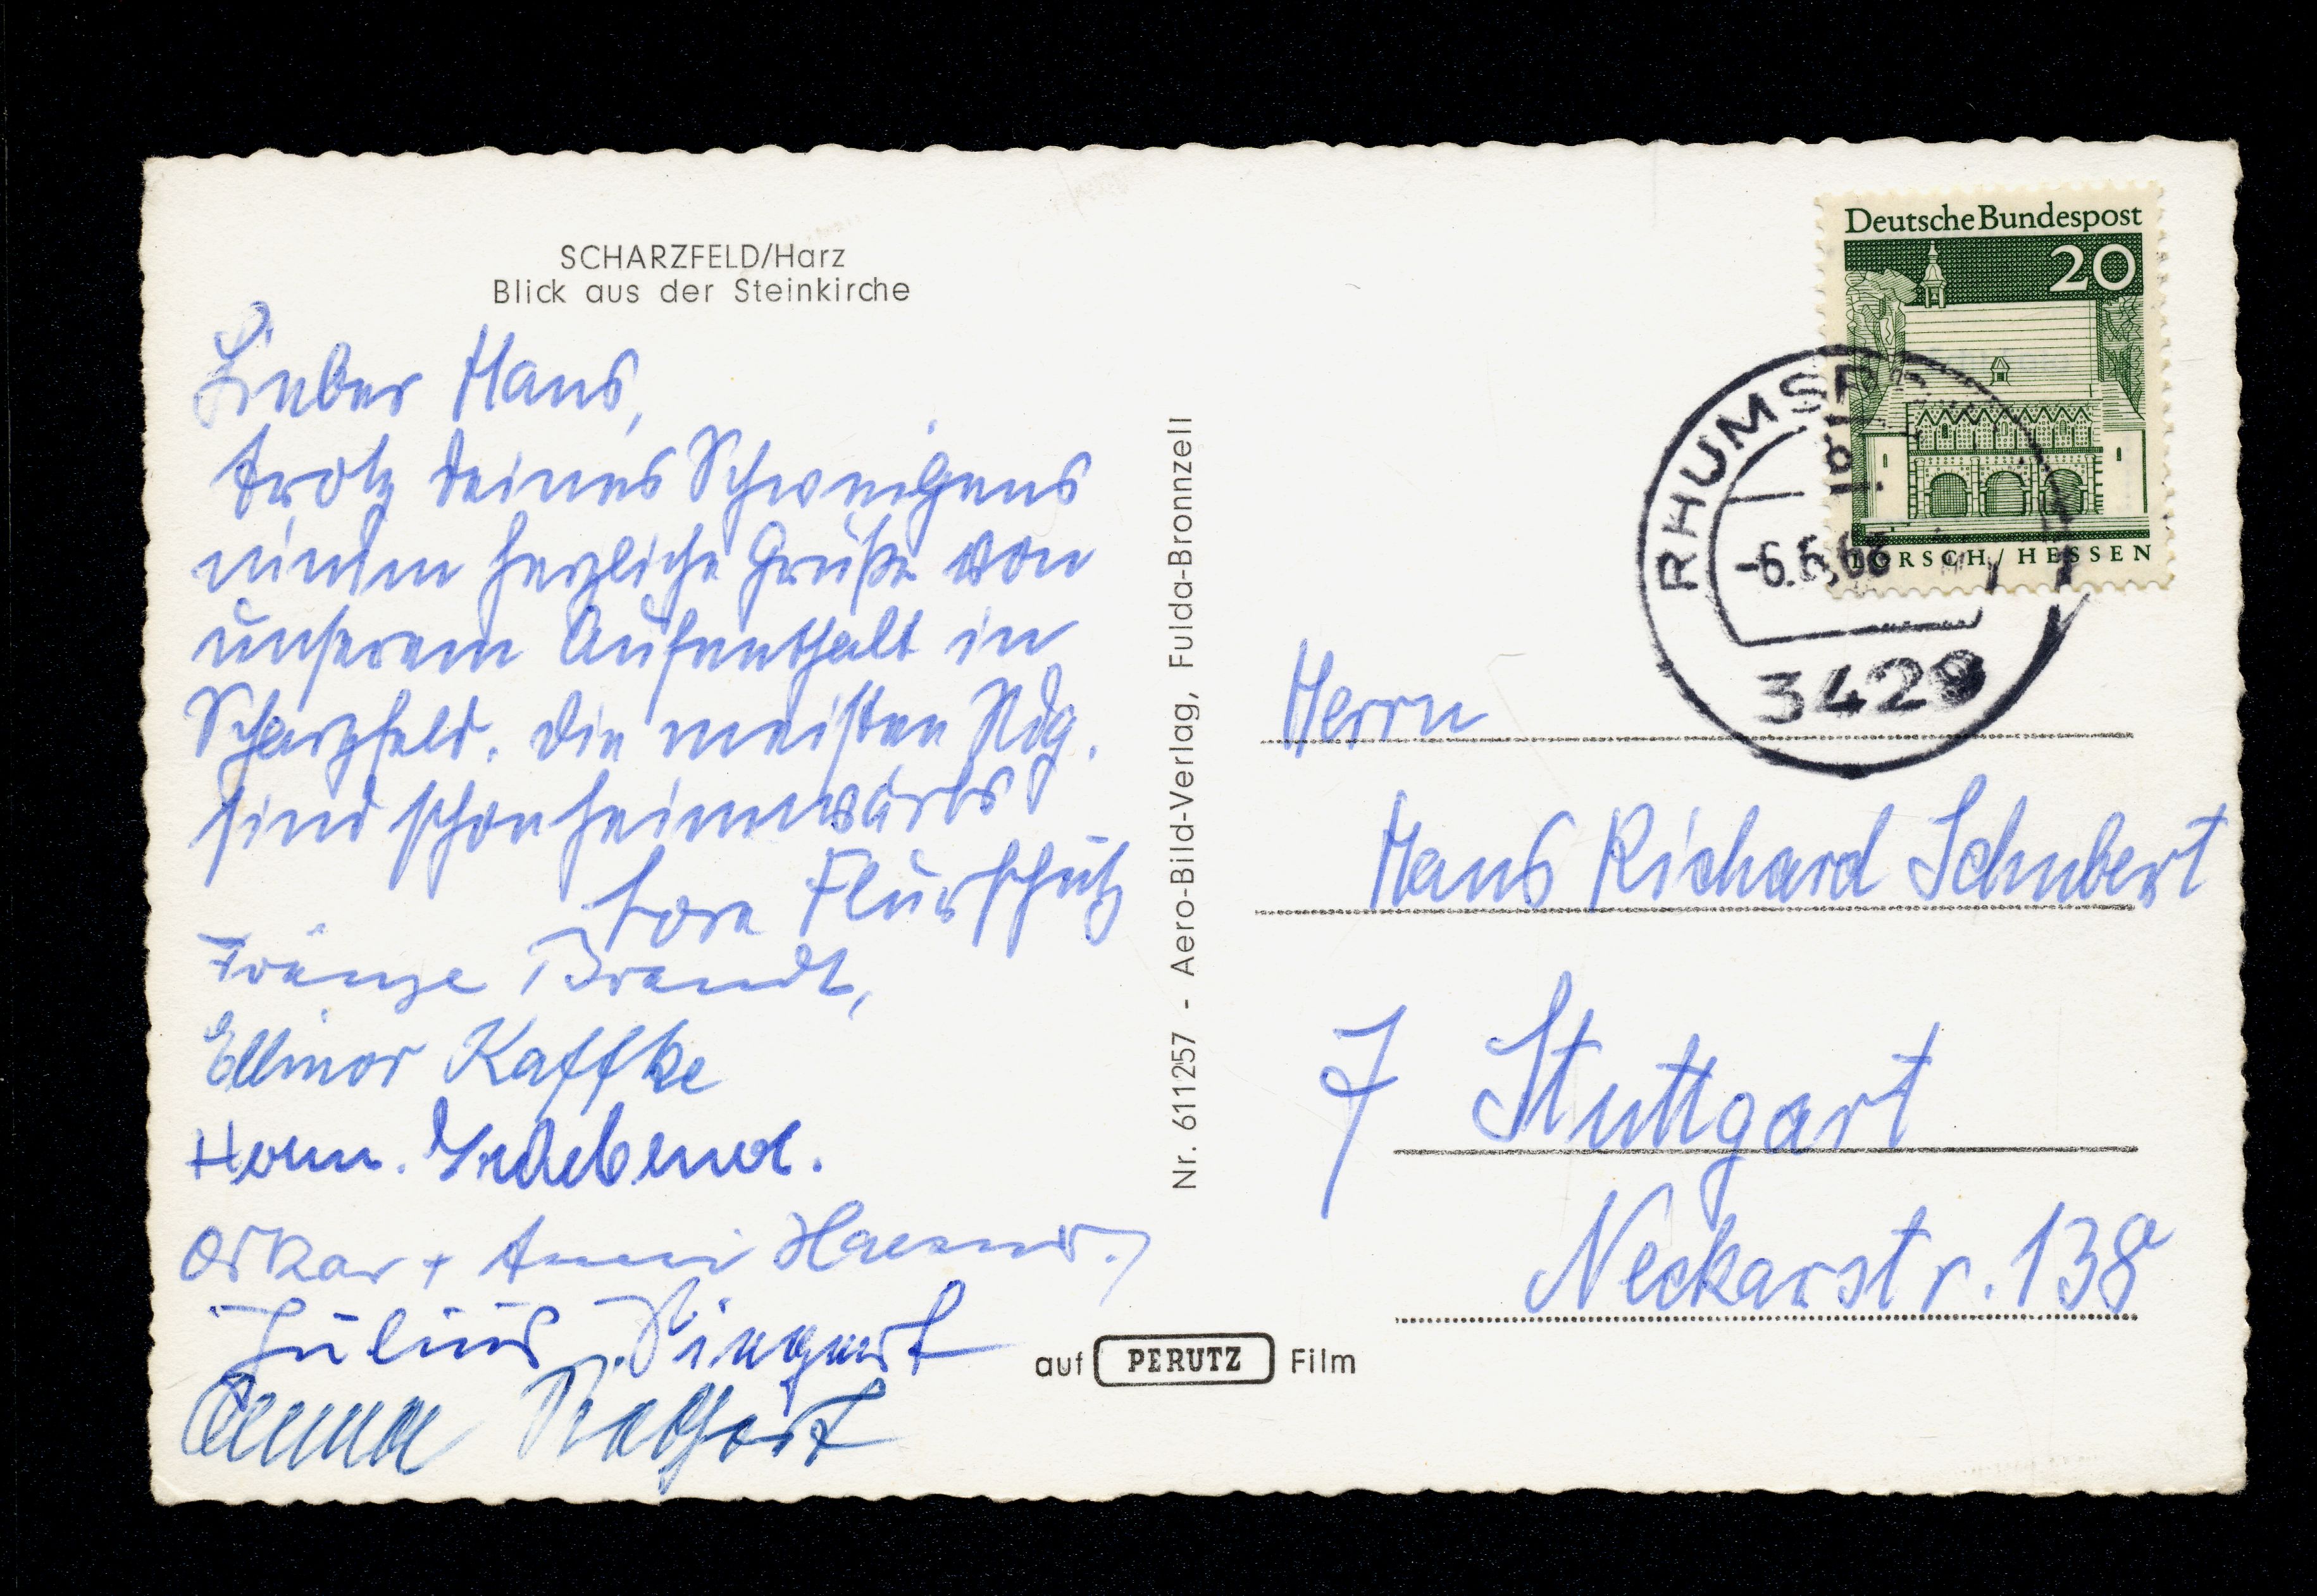 SCHARZFELD/Harz
Blick aus der Steinkirche
Lieber Hans,
trotz deines Schweigens
nimm herzliche Grüße von
unserem Aufenthalt in
Scharzfeld. Die meisten Rdg.
sind schon heimwärts
Lore Flurschütz
Fränze Brandt,
Ellinor Kaffke
Herm.
Oskar + Anni
Julius Siegert
Anna
Nr. 611257 - Aero-Bild-Verlag, Fulda-Bronnzell
auf PERUTZ Film
Deutsche Bundespost
20
LORSCH/HESSEN
RHUMSP
-6.6.68
3429
Herrn
Hans Richard Schubert
7 Stuttgart
Neckarstr. 138a